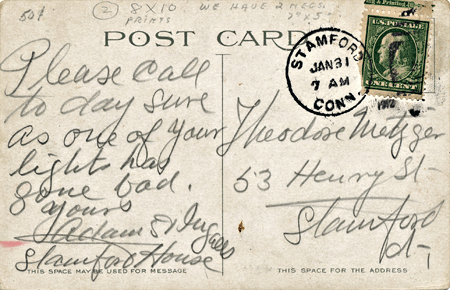 50¢ (2) 8 X 10 WE HAVE 2 NEGS.
PRINTS
POST CARD
STAMFORD
JAN 31
7 AM
CONN.
U.S. POSTAGE
ONE CENT
Please Call
to day sure
as one of your
lights has
gone bad.
Yours
Adams &
Stamford House
Theodore Metzger
53 Henry St
Stamford
Ct
THIS SPACE MAY BE USED FOR MESSAGE
THIS SPACE FOR THE ADDRESS